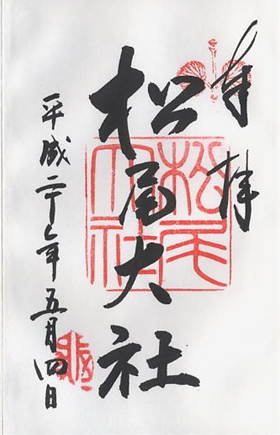 奉拝
松尾大社
松尾
大社
平成二十七年五月四日